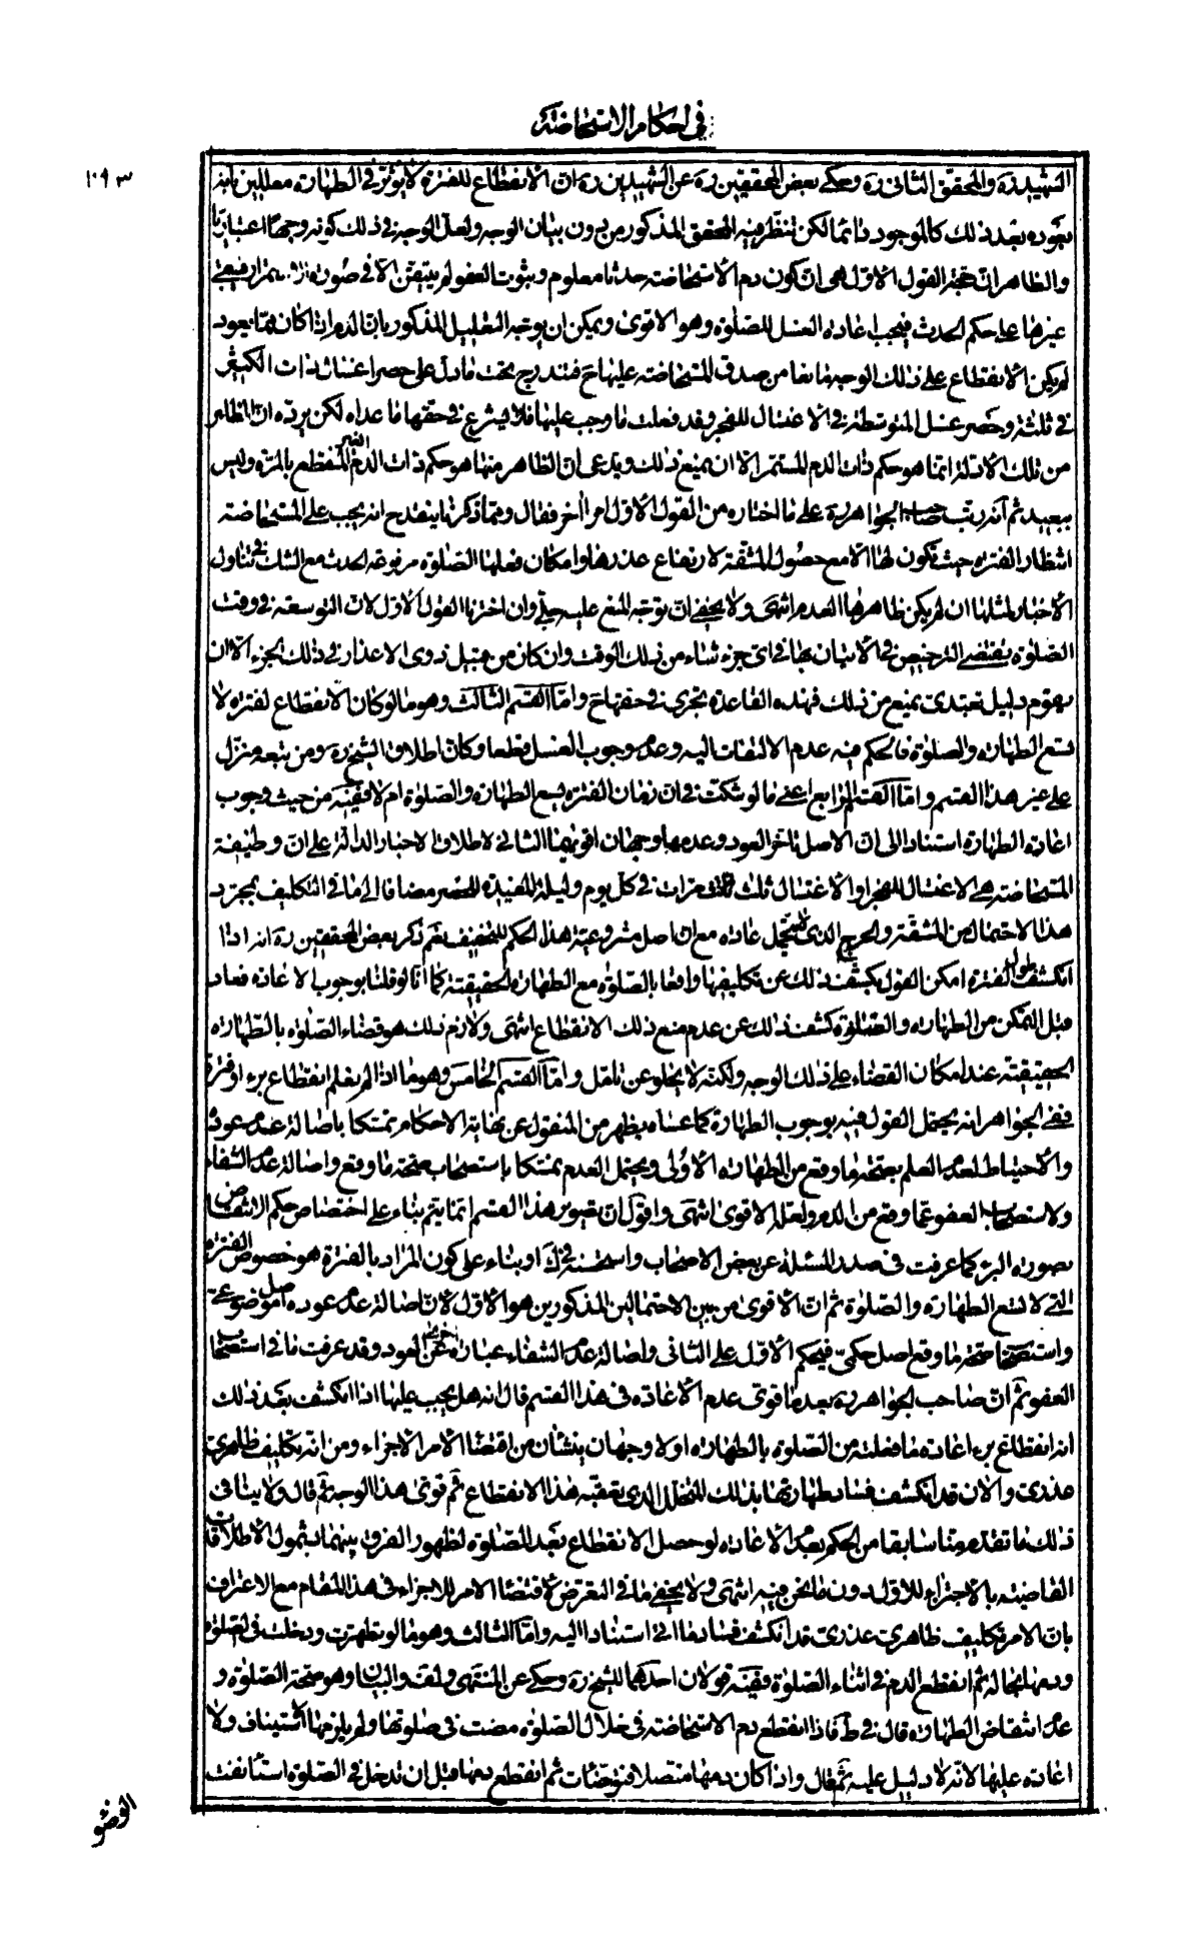 في احكام الاستحاضة
٢٩٣
الشهيد ره والمحقق الثاني ره وحكى بعض المحققين ره عن الشهيدين ره ان الانقطاع للفترة لا يؤثر في الطهارة معللين بانه
بعوده بعد ذلك كالموجود دائما لكن تنظر فيه المحقق المذكور من دون بيان الوجه ولعل الوجه في ذلك كونه وجها اعتباريا
والظاهر ان حجة القول الاول هي ان كون دم الاستحاضة حدثا معلوم وثبوت العفو لم يتيقن الا في صورة استمراره فيبقى
غيرها على حكم الحدث فيجب اعادة الغسل للصلوة وهو الاقوى ويمكن ان يوجه التعليل المذكور بان الدم اذا كان مما يعود
لم يكن الانقطاع على ذلك الوجه مانعا من صدق المستحاضة عليها ح فتندرج تحت ما دل على حصر اغسال ذات الكبرى
في ثلثة وحصر غسل المتوسطة في الاغتسال للفجر وقد فعلت ما وجب عليها فلا يشرع في حقها ما عداه لكن يرده ان الظاهر
من تلك الادلة انما هو حكم ذات الدم المستمر الا ان يمنع ذلك ويدعى ان الظاهر منها هو حكم ذات الدم الغير المنقطع بالمرة وليس
ببعيد ثم انه رتب صاحب الجواهر ره على ما اختاره من القول الاول امرا اخر فقال ومما ذكرنا ينقدح انه يجب على المستحاضة
انتظار الفترة حيث تكون لها الا مع حصول المشقة لارتفاع عذرها وامكان فعلها الصلوة مرفوعة الحدث مع الشك في تناول
الاخبار لمثلها ان لم يكن ظاهرها العدم انتهى ولا يخفى ان توجه المنع عليه جلي وان اخترنا القول الاول لان التوسعة في وقت
الصلوة يقتضي الترخيص في الاتيان بها في اي جزء شاء من ذلك الوقت وان كان من قبيل ذوي الاعذار في ذلك الجزء الا ان
يقوم دليل تعبدي يمنع من ذلك فهذه القاعدة تجري في حقها ح واما القسم الثالث وهو ما لو كان الانقطاع لفترة لا
تسع الطهارة والصلوة فالحكم فيه عدم الالتفات اليه وعدم وجوب الغسل قطعا وكان اطلاق الشيخ ره ومن تبعه منزل
على غير هذا القسم واما القسم الرابع اعني ما لو شكت في ان زمان الفترة يسع الطهارة والصلوة ام لا ففيه من حيث وجوب
اعادة الطهارة استنادا الى ان الاصل تاخر العود وعدمها وجهان اقويهما الثاني لاطلاق الاخبار الدالة على ان وظيفة
المستحاضة هي الاغتسال للفجر او الاغتسال ثلث مرات في كل يوم وليلة المفيدة للحصر مضافا الى ما في التكليف بمجرد
هذا الاحتمال من المشقة والحرج الذي لا يتحمل عادة مع ان اصل مشروعية هذا الحكم للتخفيف نعم ذكر بعض المحققين ره انه اذا
انكشف طول الفترة امكن القول بكشف ذلك عن تكليفها واقعا بالصلوة مع الطهارة الحقيقية كما انا لو قلنا بوجوب الاعادة فعاد
قبل التمكن من الطهارة والصلوة كشف ذلك عن عدم منع ذلك الانقطاع انتهى ولازم ذلك هو قضاء الصلوة بالطهارة
الحقيقية عند امكان القضاء على ذلك الوجه ولكنه لا يخلو عن تامل واما القسم الخامس وهو ما اذا لم يعلم انقطاع برء او فترة
ففي الجواهر انه يحتمل القول فيه بوجوب الطهارة كما عساه يظهر من المنقول عن نهاية الاحكام تمسكا باصالة عدم عوده
والاحتياط لعدم العلم بصحة ما وقع من الطهارة الاولى ويحتمل العدم تمسكا باستصحاب صحة ما وقع واصالة عدم الشفاء
ولاستصحاب العفو عما وقع من الدم ولعله الاقوى انتهى واقول ان تصوير هذا القسم انما يتم بناء على اختصاص حكم الانتقاض
بصورة البرء كما عرفت في صدر المسئلة عن بعض الاصحاب واستحسنه في ك او بناء على كون المراد بالفترة هو خصوص الفترة
التي لا تسع الطهارة والصلوة ثم ان الاقوى من بين الاحتمالين المذكورين هو الاول لان اصالة عدم عوده اصل موضوعي
واستصحاب صحة ما وقع اصل حكمي فيحكم الاول على الثاني واصالة عدم الشفاء عبارة اخرى عن العود وقد عرفت ما في استصحاب
العفو ثم ان صاحب الجواهر ره بعد ما قوى عدم الاعادة في هذا القسم قال انه هل يجب عليها اذا انكشف بعد ذلك
انه انقطاع برء اعادة ما فعلته من الصلوة بالطهارة او لا وجهان ينشأن من اقتضاء الامر الاجزاء ومن انه تكليف ظاهري
عذري والان قد انكشف فساد طهارتها بذلك للتخلل الذي يعقبه هذا الانقطاع ثم قوى هذا الوجه ثم قال ولا ينافي
ذلك ما تقدم منا سابقا من الحكم بعدم الاعادة لو حصل الانقطاع بعد الصلوة لظهور الفرق بينهما بشمول الاطلاقات
القاضية بالاجتزاء للاول دون ما نحن فيه انتهى ولا يخفى ما في التعرض لاقتضاء الامر للاجزاء في هذا المقام مع الاعتراف
بان الامر تكليف ظاهري عذري قد انكشف فساد ما اتى استنادا اليه واما الثالث وهو ما لو تطهرت ودخلت في الصلوة
ودمها بحاله ثم انقطع الدم في اثناء الصلوة ففيه قولان احدهما للشيخ ره وحكي عن المنتهى والبيان وهو صحة الصلوة و
عدم انتقاض الطهارة قال في ط فاذا انقطع دم الاستحاضة في خلال الصلوة مضت في صلوتها ولم يلزمها الاستيناف ولا
اعادة عليها لانه لا دليل عليه ثم قال واذا كان دمها متصلا فتوضات ثم انقطع دمها قبل ان تدخل في الصلوة استانفت
الوضوء